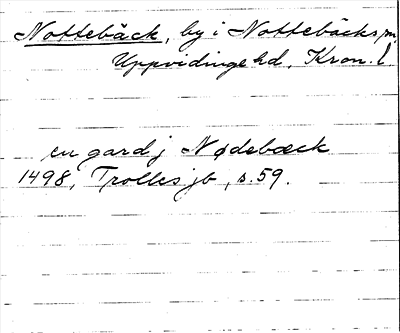 Nottebäck, by i Nottebäcks sn,
Uppvidinge hd, Kron. l.
en gard j Nødebæck
1498, Trolles jb, s. 59.